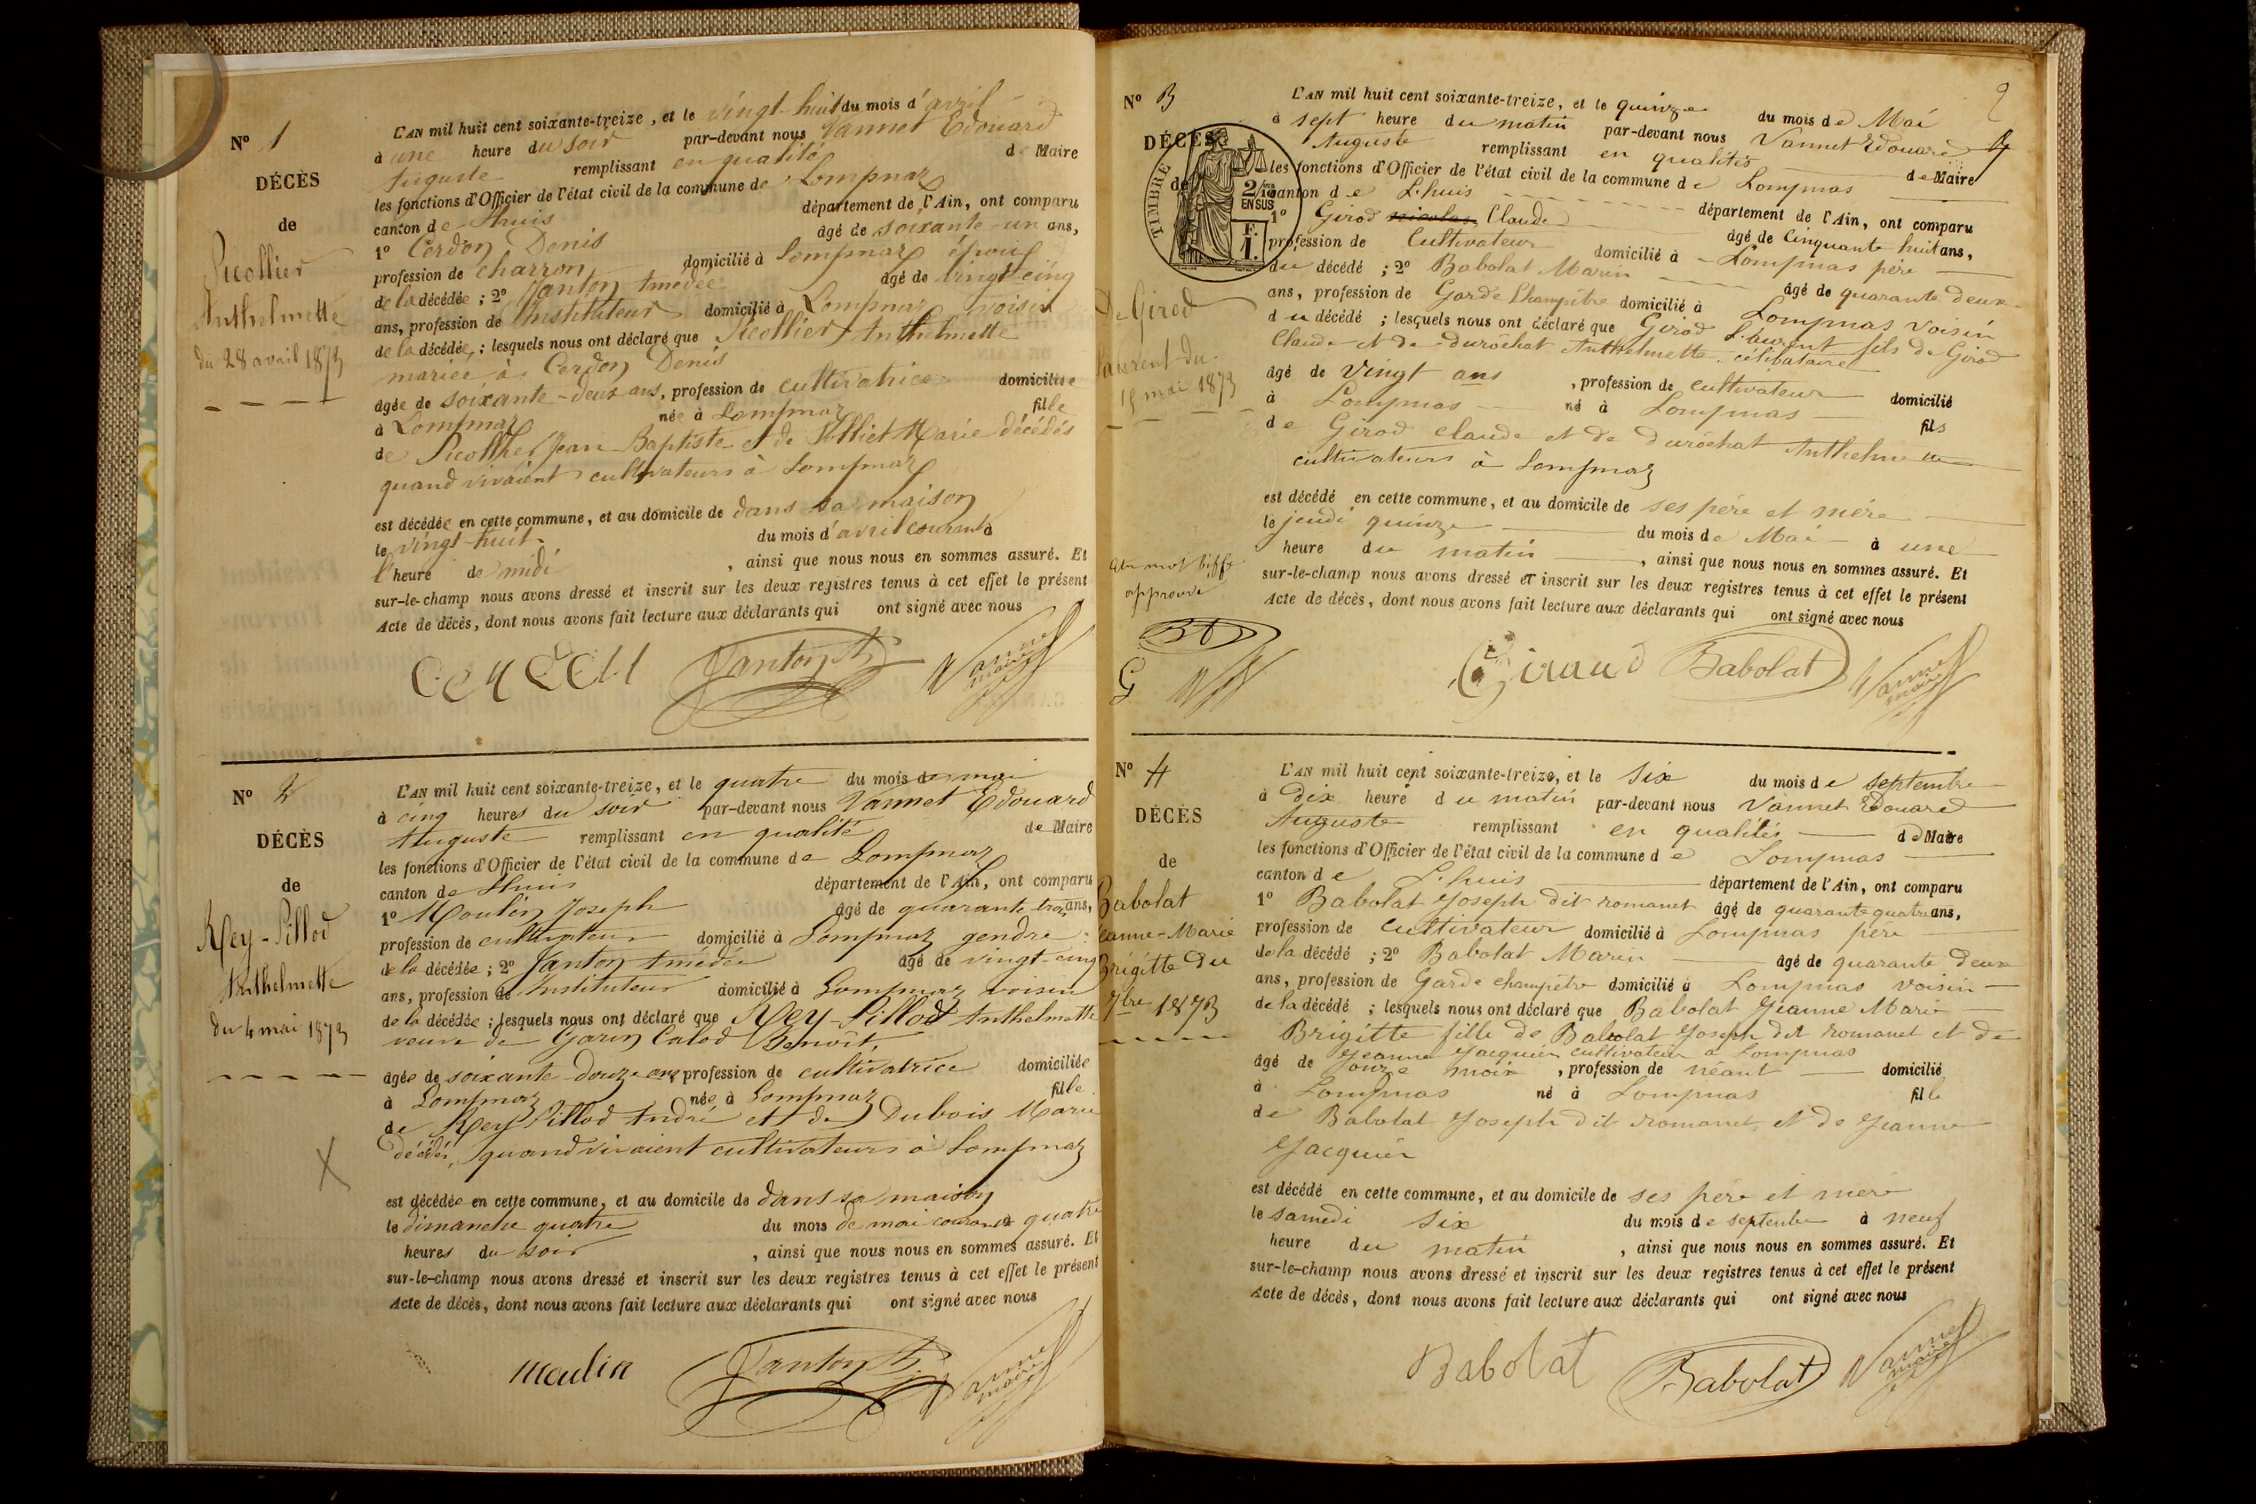 N° 1
DÉCÈS
de
Picollier
Anthelmette
du 28 avril 1873
L'AN mil huit cent soixante-treize, et le vingt-huit du mois d'avril
à une heure du soir par-devant nous Vannet Edouard
Auguste remplissant en qualité de Maire
les fonctions d'Officier de l'état civil de la commune de Lompnaz
canton de Lhuis département de l'Ain, ont comparu
1° Cerdon Denis âgé de soixante-un ans,
profession de charron domicilié à Lompnaz époux
de la décédée ; 2° Janton Amédée âgé de vingt-cinq
ans, profession de Instituteur domicilié à Lompnaz voisin
de la décédée ; lesquels nous ont déclaré que Picollier Anthelmette
mariée à Cerdon Denis
âgée de soixante-deux ans, profession de cultivatrice domiciliée
à Lompnaz née à Lompnaz fille
de Picollier Jean-Baptiste et de Marie décédés
quand vivaient cultivateurs à Lompnaz
est décédée en cette commune, et au domicile de dans sa maison
le vingt-huit du mois d'avril courant à
l'heure de midi , ainsi que nous nous en sommes assuré. Et
sur-le-champ nous avons dressé et inscrit sur les deux registres tenus à cet effet le présent
Acte de décès, dont nous avons fait lecture aux déclarants qui ont signé avec nous
Janton A. Vannet
maire
N° 2
DÉCÈS
de
Rey-Pillod
Anthelmette
du 4 mai 1873
L'AN mil huit cent soixante-treize, et le quatre du mois de mai
à cinq heures du soir par-devant nous Vannet Edouard
Auguste remplissant en qualité de Maire
les fonctions d'Officier de l'état civil de la commune de Lompnaz
canton de Lhuis département de l'Ain, ont comparu
1° Moulin Joseph âgé de quarante-trois ans,
profession de cultivateur domicilié à Lompnaz gendre
de la décédée ; 2° Janton Amédée âgé de vingt-cinq
ans, profession de Instituteur domicilié à Lompnaz voisin
de la décédée ; lesquels nous ont déclaré que Rey-Pillod Anthelmette
veuve de Garin Benoit,
âgée de soixante-douze ans profession de cultivatrice domiciliée
à Lompnaz née à Lompnaz fille
de Rey Pillod André et de Dubois Marie
décédés, quand vivaient cultivateurs à Lompnaz
est décédée en cette commune, et au domicile de dans sa maison
le dimanche quatre du mois de mai courant à quatre
heures du soir , ainsi que nous nous en sommes assuré. Et
sur-le-champ nous avons dressé et inscrit sur les deux registres tenus à cet effet le présent
Acte de décès, dont nous avons fait lecture aux déclarants qui ont signé avec nous
Moulin Janton A. Vannet
maire
2
N° 3
DÉCÈS
de
TIMBRE
2/10mes
EN SUS
F.
1.
De Girod
Laurent du
15 mai 1873
L'AN mil huit cent soixante-treize, et le quinze du mois de Mai
à sept heure du matin par-devant nous Vannet Edouard
Auguste remplissant en qualités de Maire
les fonctions d'Officier de l'état civil de la commune de Lompnas
canton de L'huis département de l'Ain, ont comparu
1° Girod Claude âgé de Cinquante huit ans,
profession de Cultivateur domicilié à Lompnas père
du décédé ; 2° Babolat Marin âgé de quarante deux
ans, profession de Garde Champêtre domicilié à Lompnas voisin
du décédé ; lesquels nous ont déclaré que Girod Laurent fils de Girod
Claude et de durochat Anthelmette célibataire
âgé de Vingt ans , profession de cultivateur domicilié
à Lompnas né à Lompnas fils
de Girod claude et de durochat Anthelmette
cultivateurs à Lompnaz
est décédé en cette commune, et au domicile de ses père et mère
le jeudi quinze du mois de Mai à une
heure du matin , ainsi que nous nous en sommes assuré. Et
sur-le-champ nous avons dressé et inscrit sur les deux registres tenus à cet effet le présent
Acte de décès, dont nous avons fait lecture aux déclarants qui ont signé avec nous
un mot biffé
approuvé
Giraud Babolat Vannet
maire
N° 4
DÉCÈS
de
Babolat
Jeanne-Marie
Brigitte du
7bre 1873
L'AN mil huit cent soixante-treize, et le six du mois de septembre
à dix heure du matin par-devant nous Vannet Edouard
Auguste remplissant en qualités de Maire
les fonctions d'Officier de l'état civil de la commune de Lompnas
canton de L'huis département de l'Ain, ont comparu
1° Babolat Joseph dit romanet âgé de quarante quatre ans,
profession de Cultivateur domicilié à Lompnas père
de la décédé ; 2° Babolat Marin âgé de quarante deux
ans, profession de Garde champêtre domicilié à Lompnas voisin
de la décédé ; lesquels nous ont déclaré que Babolat Jeanne Marie
Brigitte fille de Babolat Joseph dit romanet et de
Jeanne Jacquier cultivateur a Lompnas
âgé de mois , profession de néant domicilié
à Lompnas né à Lompnas fille
de Babolat Joseph dit romanet et de Jeanne
Jacquier
est décédé en cette commune, et au domicile de ses père et mère
le samedi six du mois de septembre à neuf
heure du matin , ainsi que nous nous en sommes assuré. Et
sur-le-champ nous avons dressé et inscrit sur les deux registres tenus à cet effet le présent
Acte de décès, dont nous avons fait lecture aux déclarants qui ont signé avec nous
Babolat Babolat Vannet
maire